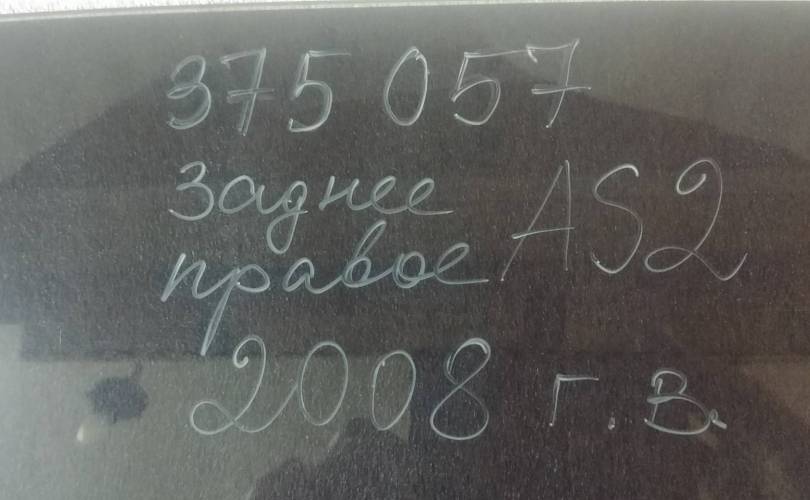 375 057
заднее AS2
правое
2008 г.в.